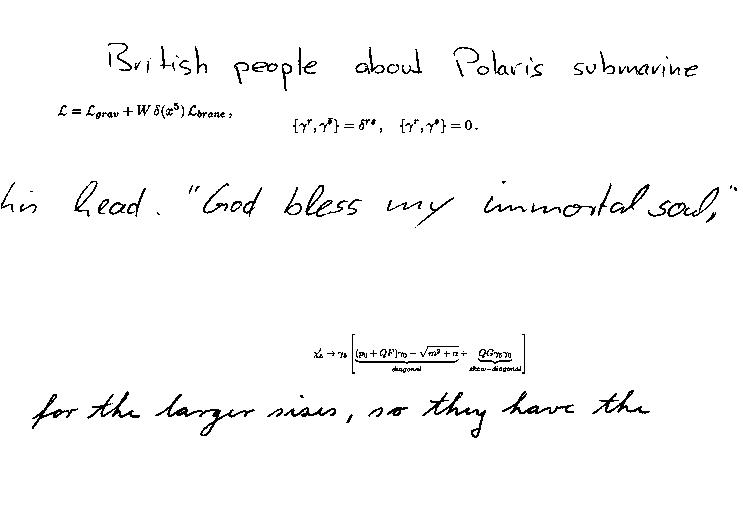 British people about Polaris submarine
ℒ = ℒ_grav + W δ(x⁵) ℒ_brane ,
{γ^r, γ^s̄} = δ^{r s} ,   {γ^r, γ^s} = 0 .
his head. "God bless my immortal soul,"
(p₀ + QF)γ₀ − √(m² + n) + QGγ₅γ₀
diagonal skew−diagonal
for the larger sises, so they have the